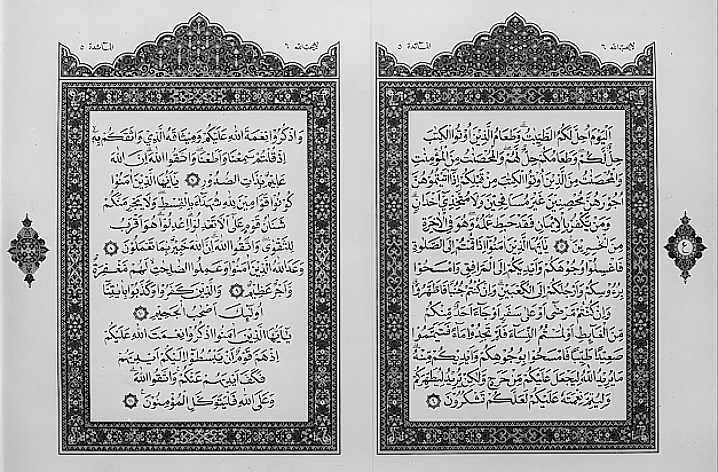 لا يحب الله ٦
المائدة ٥
اَلْيَوْمَ اُحِلَّ لَكُمُ الطَّيِّبٰتُ وَطَعَامُ الَّذٖينَ اُوتُوا الْكِتٰبَ
حِلٌّ لَكُمْ وَطَعَامُكُمْ حِلٌّ لَهُمْ وَالْمُحْصَنٰتُ مِنَ الْمُؤْمِنٰتِ
وَالْمُحْصَنٰتُ مِنَ الَّذٖينَ اُوتُوا الْكِتٰبَ مِنْ قَبْلِكُمْ اِذَا اٰتَيْتُمُوهُنَّ
اُجُورَهُنَّ مُحْصِنٖينَ غَيْرَ مُسَافِحٖينَ وَلَا مُتَّخِذٖي اَخْدَانٍ
وَمَنْ يَكْفُرْ بِالْاٖيمَانِ فَقَدْ حَبِطَ عَمَلُهُ وَهُوَ فِي الْاٰخِرَةِ
مِنَ الْخَاسِرٖينَ يَٓا اَيُّهَا الَّذٖينَ اٰمَنُٓوا اِذَا قُمْتُمْ اِلَى الصَّلٰوةِ
فَاغْسِلُوا وُجُوهَكُمْ وَاَيْدِيَكُمْ اِلَى الْمَرَافِقِ وَامْسَحُوا
بِرُؤُسِكُمْ وَاَرْجُلَكُمْ اِلَى الْكَعْبَيْنِ وَاِنْ كُنْتُمْ جُنُبًا فَاطَّهَّرُوا
وَاِنْ كُنْتُمْ مَرْضٰٓى اَوْ عَلٰى سَفَرٍ اَوْ جَٓاءَ اَحَدٌ مِنْكُمْ
مِنَ الْغَٓائِطِ اَوْ لٰمَسْتُمُ النِّسَٓاءَ فَلَمْ تَجِدُوا مَٓاءً فَتَيَمَّمُوا
صَعٖيدًا طَيِّبًا فَامْسَحُوا بِوُجُوهِكُمْ وَاَيْدٖيكُمْ مِنْهُ
مَا يُرٖيدُ اللّٰهُ لِيَجْعَلَ عَلَيْكُمْ مِنْ حَرَجٍ وَلٰكِنْ يُرٖيدُ لِيُطَهِّرَكُمْ
وَلِيُتِمَّ نِعْمَتَهُ عَلَيْكُمْ لَعَلَّكُمْ تَشْكُرُونَ
لا يحب الله ٦
المائدة ٥
وَاذْكُرُوا نِعْمَةَ اللّٰهِ عَلَيْكُمْ وَمٖيثَاقَهُ الَّذٖي وَاثَقَكُمْ بِهٖٓ
اِذْ قُلْتُمْ سَمِعْنَا وَاَطَعْنَا وَاتَّقُوا اللّٰهَ اِنَّ اللّٰهَ
عَلٖيمٌ بِذَاتِ الصُّدُورِ يَٓا اَيُّهَا الَّذٖينَ اٰمَنُوا
كُونُوا قَوَّامٖينَ لِلّٰهِ شُهَدَٓاءَ بِالْقِسْطِ وَلَا يَجْرِمَنَّكُمْ
شَنَاٰنُ قَوْمٍ عَلٰٓى اَلَّا تَعْدِلُوا اِعْدِلُوا هُوَ اَقْرَبُ
لِلتَّقْوٰى وَاتَّقُوا اللّٰهَ اِنَّ اللّٰهَ خَبٖيرٌ بِمَا تَعْمَلُونَ
وَعَدَ اللّٰهُ الَّذٖينَ اٰمَنُوا وَعَمِلُوا الصَّالِحَاتِ لَهُمْ مَغْفِرَةٌ
وَاَجْرٌ عَظٖيمٌ وَالَّذٖينَ كَفَرُوا وَكَذَّبُوا بِاٰيَاتِنَٓا
اُولٰٓئِكَ اَصْحَابُ الْجَحٖيمِ
يَٓا اَيُّهَا الَّذٖينَ اٰمَنُوا اذْكُرُوا نِعْمَتَ اللّٰهِ عَلَيْكُمْ
اِذْ هَمَّ قَوْمٌ اَنْ يَبْسُطُٓوا اِلَيْكُمْ اَيْدِيَهُمْ
فَكَفَّ اَيْدِيَهُمْ عَنْكُمْ وَاتَّقُوا اللّٰهَ
وَعَلَى اللّٰهِ فَلْيَتَوَكَّلِ الْمُؤْمِنُونَ